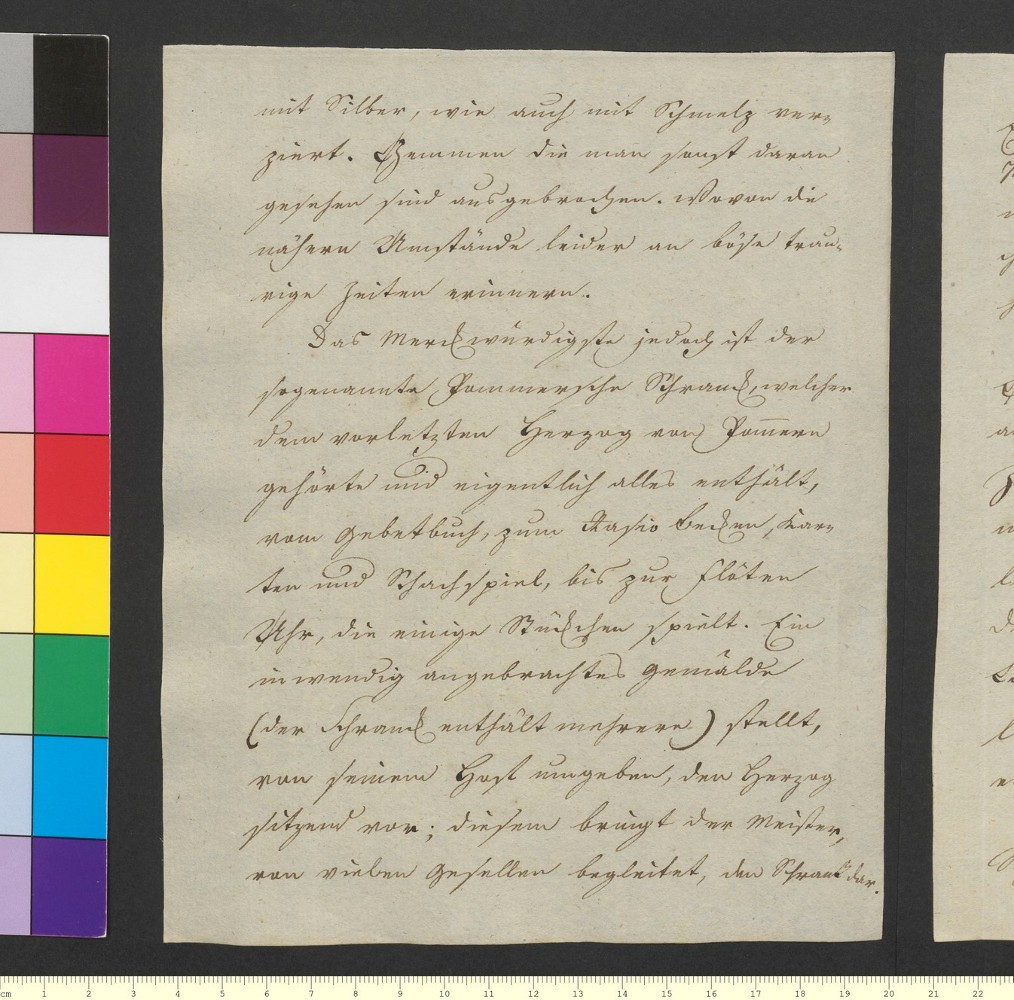 mit Silber, wie auch mit Schmelz ver-
ziert. Gemmen die man sonst daran
gesehen sind ausgebrochen. Wovon die
nähern Umstände leider an böse trau-
rige Zeiten erinnern.
Das Merckwürdigste jedoch ist der
sogenannte Pommersche Schranck, welcher
dem vorletzten Herzog von Pom̄ern
gehörte und eigentlich alles enthält,
vom Gebetbuch, zum Rasir Becken, Kar-
ten und Schachspiel, bis zur Flöten
Uhr, die einige Stückchen spielt. Ein
inwendig angebrachtes Gemälde
(der Schranck enthält mehrere) stellt,
von seinem Hof umgeben, den Herzog
sitzend vor; diesem bringt der Meister,
von vielen Gesellen begleitet, den Schrank dar.